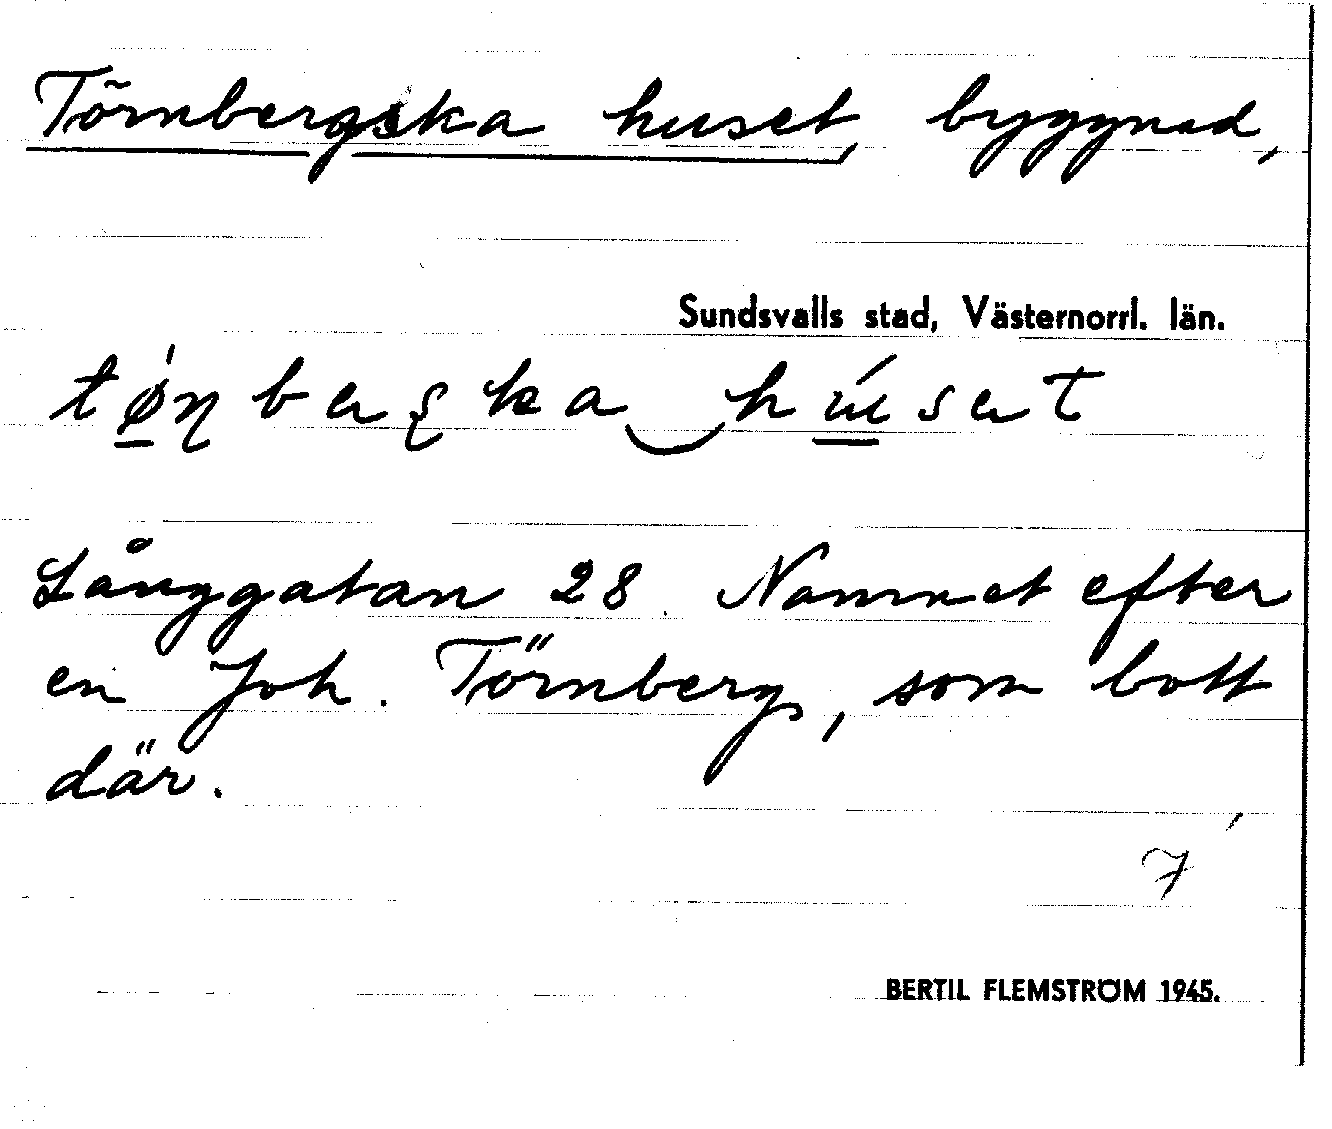 Törnbergska huset, byggnad,
Sundsvalls stad, Västernorrl. län.
Långgatan 28. Namnet efter
en Joh. Törnberg, som bott
där.
7
BERTIL FLEMSTRÖM 1945.